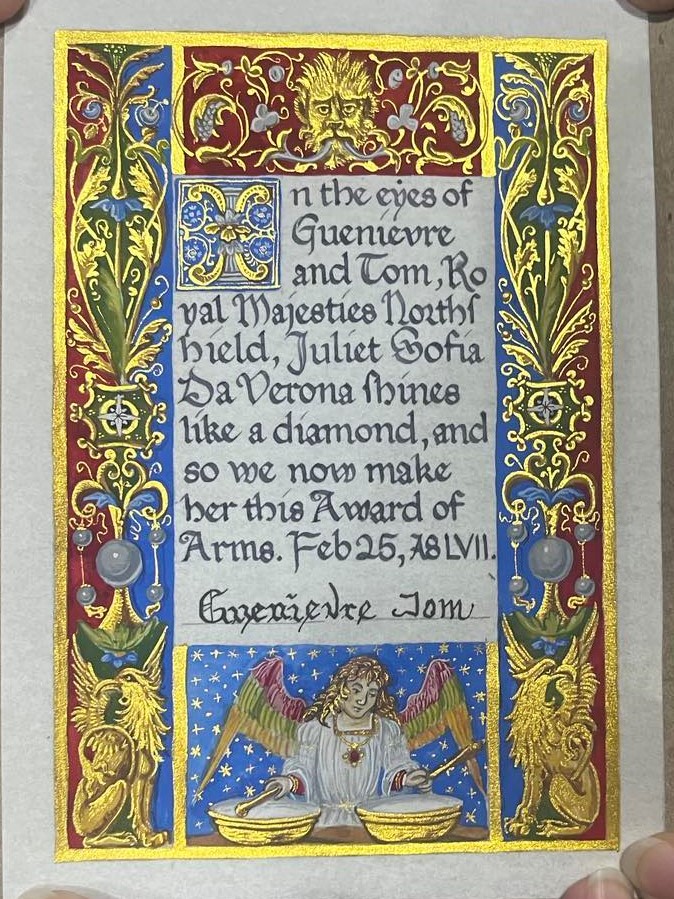 In the eyes of
Guenievre
and Tom, Ro
yal Majesties Norths
hield, Juliet Sofia
Da Verona shines
like a diamond, and
so we now make
her this Award of
Arms. Feb 25, AS LVII.
Guenievre Tom